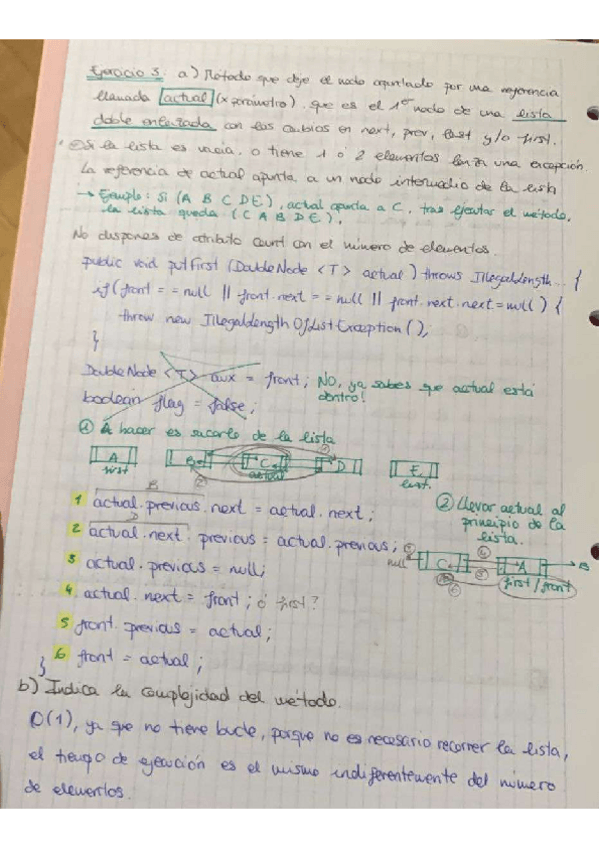 Ejercicio 3. a) Método que deje el nodo apuntado por una referencia
llamada actual (x parámetro). que es el 1er nodo de una lista
doble enlazada con los cambios en next, prev, last y/o first.
Si la lista es vacía, o tiene 1 ó 2 elementos lanza una excepción.
La referencia de actual apunta a un nodo intermedio de la lista
→ Ejemplo: Si (A B C D E), actual apunta a C, tras ejecutar el método,
la lista queda (C A B D E).
No dispones de atributo count con el número de elementos.
public void putFirst (DoubleNode <T> actual) throws IllegalLength... {
if (front == null || front.next == null || front.next.next = null) {
throw new IllegalLengthOfListException();
}
DoubleNode <T> aux = front; NO, ya sabes que actual está
dentro!
boolean flag = false;
① A hacer es sacarlo de la lista
A B C D E
first actual last.
② Llevar actual al
principio de la
lista.
B
1 actual.previous.next = actual.next;
D
2 actual.next.previous = actual.previous;
null C A B
first/front
3 actual.previous = null;
4 actual.next = front; ó first?
5 front.previous = actual;
6 front = actual;
}
b) Indica la complejidad del método.
O(1), ya que no tiene bucle, porque no es necesario recorrer la lista,
el tiempo de ejecución es el mismo indiferentemente del número
de elementos.